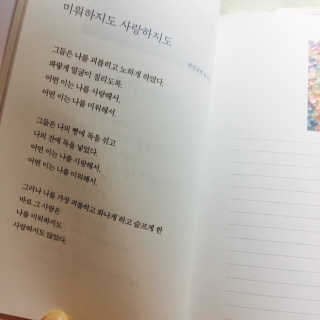 미워하지도 사랑하지도
그들은 나를 괴롭히고 노하게 하였다.
파랗게 얼굴이 질리도록.
어떤 이는 나를 사랑해서,
어떤 이는 나를 미워해서.
그들은 나의 빵에 독을 섞고
나의 잔에 독을 넣었다.
어떤 이는 나를 사랑해서,
어떤 이는 나를 미워해서.
그러나 나를 가장 괴롭히고 화나게 하고 슬프게 한
바로 그 사람은
나를 미워하지도
사랑하지도 않았다.